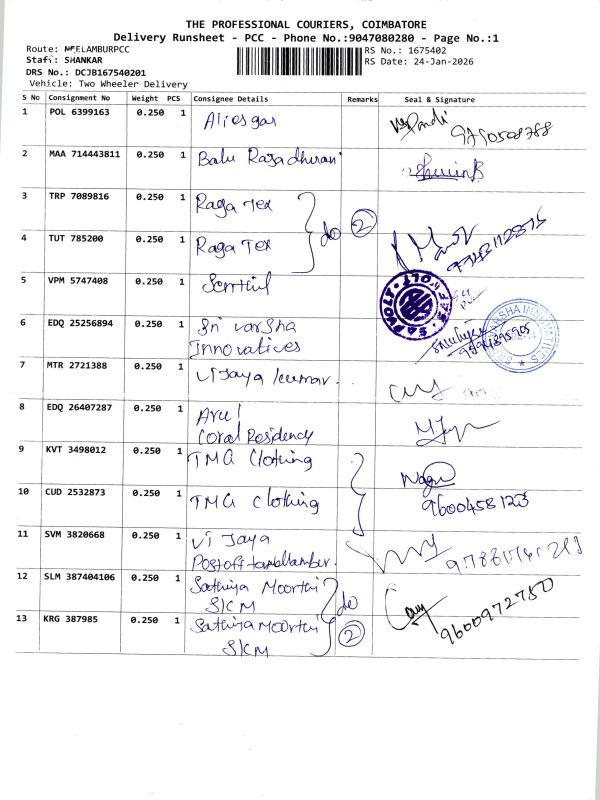 THE PROFESSIONAL COURIERS, COIMBATORE
Delivery Runsheet - PCC - Phone No.:9047080280 - Page No.:1
Route: NEELAMBURPCC
RS No.: 1675402
Staff: SHANKAR
RS Date: 24-Jan-2026
DRS No.: DCJB167540201
Vehicle: Two Wheeler Delivery
S No Consignment No Weight PCS Consignee Details Remarks Seal & Signature
1 POL 6399163 0.250 1 Aliesgar
2 MAA 714443811 0.250 1 Balu
3 TRP 7089816 0.250 1 Raga Tex
do 2
4 TUT 785200 0.250 1 Raga Tex
5 VPM 5747408 0.250 1 Senthil
6 EDQ 25256894 0.250 1 Sri varsha
Innovatives
7 MTR 2721388 0.250 1 Vijaya kumar.
8 EDQ 26407287 0.250 1 Arul
Coral Residency
9 KVT 3498012 0.250 1 TMG Clothing
10 CUD 2532873 0.250 1 TMG Clothing 9600458123
11 SVM 3820668 0.250 1 Vijaya
12 SLM 387404106 0.250 1 Sathiya Moorthi
SKM do
13 KRG 387985 0.250 1 Sathiya Moorthi 2 9600972780
SKM